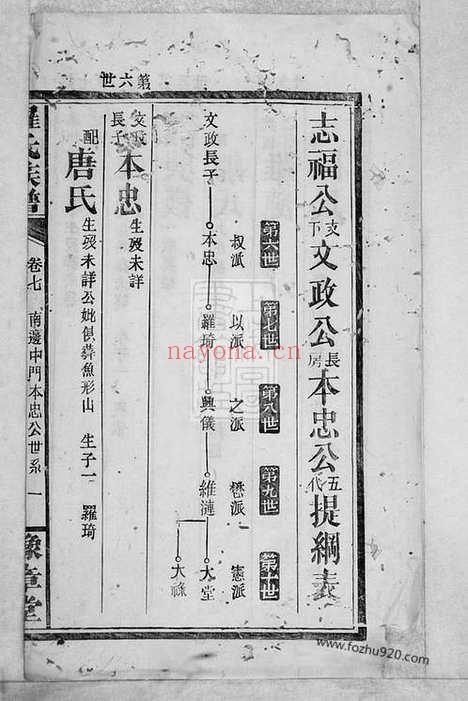 志福公支下文政公長房本忠公五代提綱表
第六世 第七世 第八世 第九世 第十世
叔派 以派 之派 懋派 憲派
文政長子 本忠 羅琦 興儀 維漣 大堂
大祿
第六世
文政長子 本忠 生歿未詳
配 唐氏 生歿未詳公妣俱葬魚形山 生子一 羅琦
羅氏族譜 卷七 南邊中門本忠公世系 一 豫章堂
nayona.cn
www.fozhu920.com